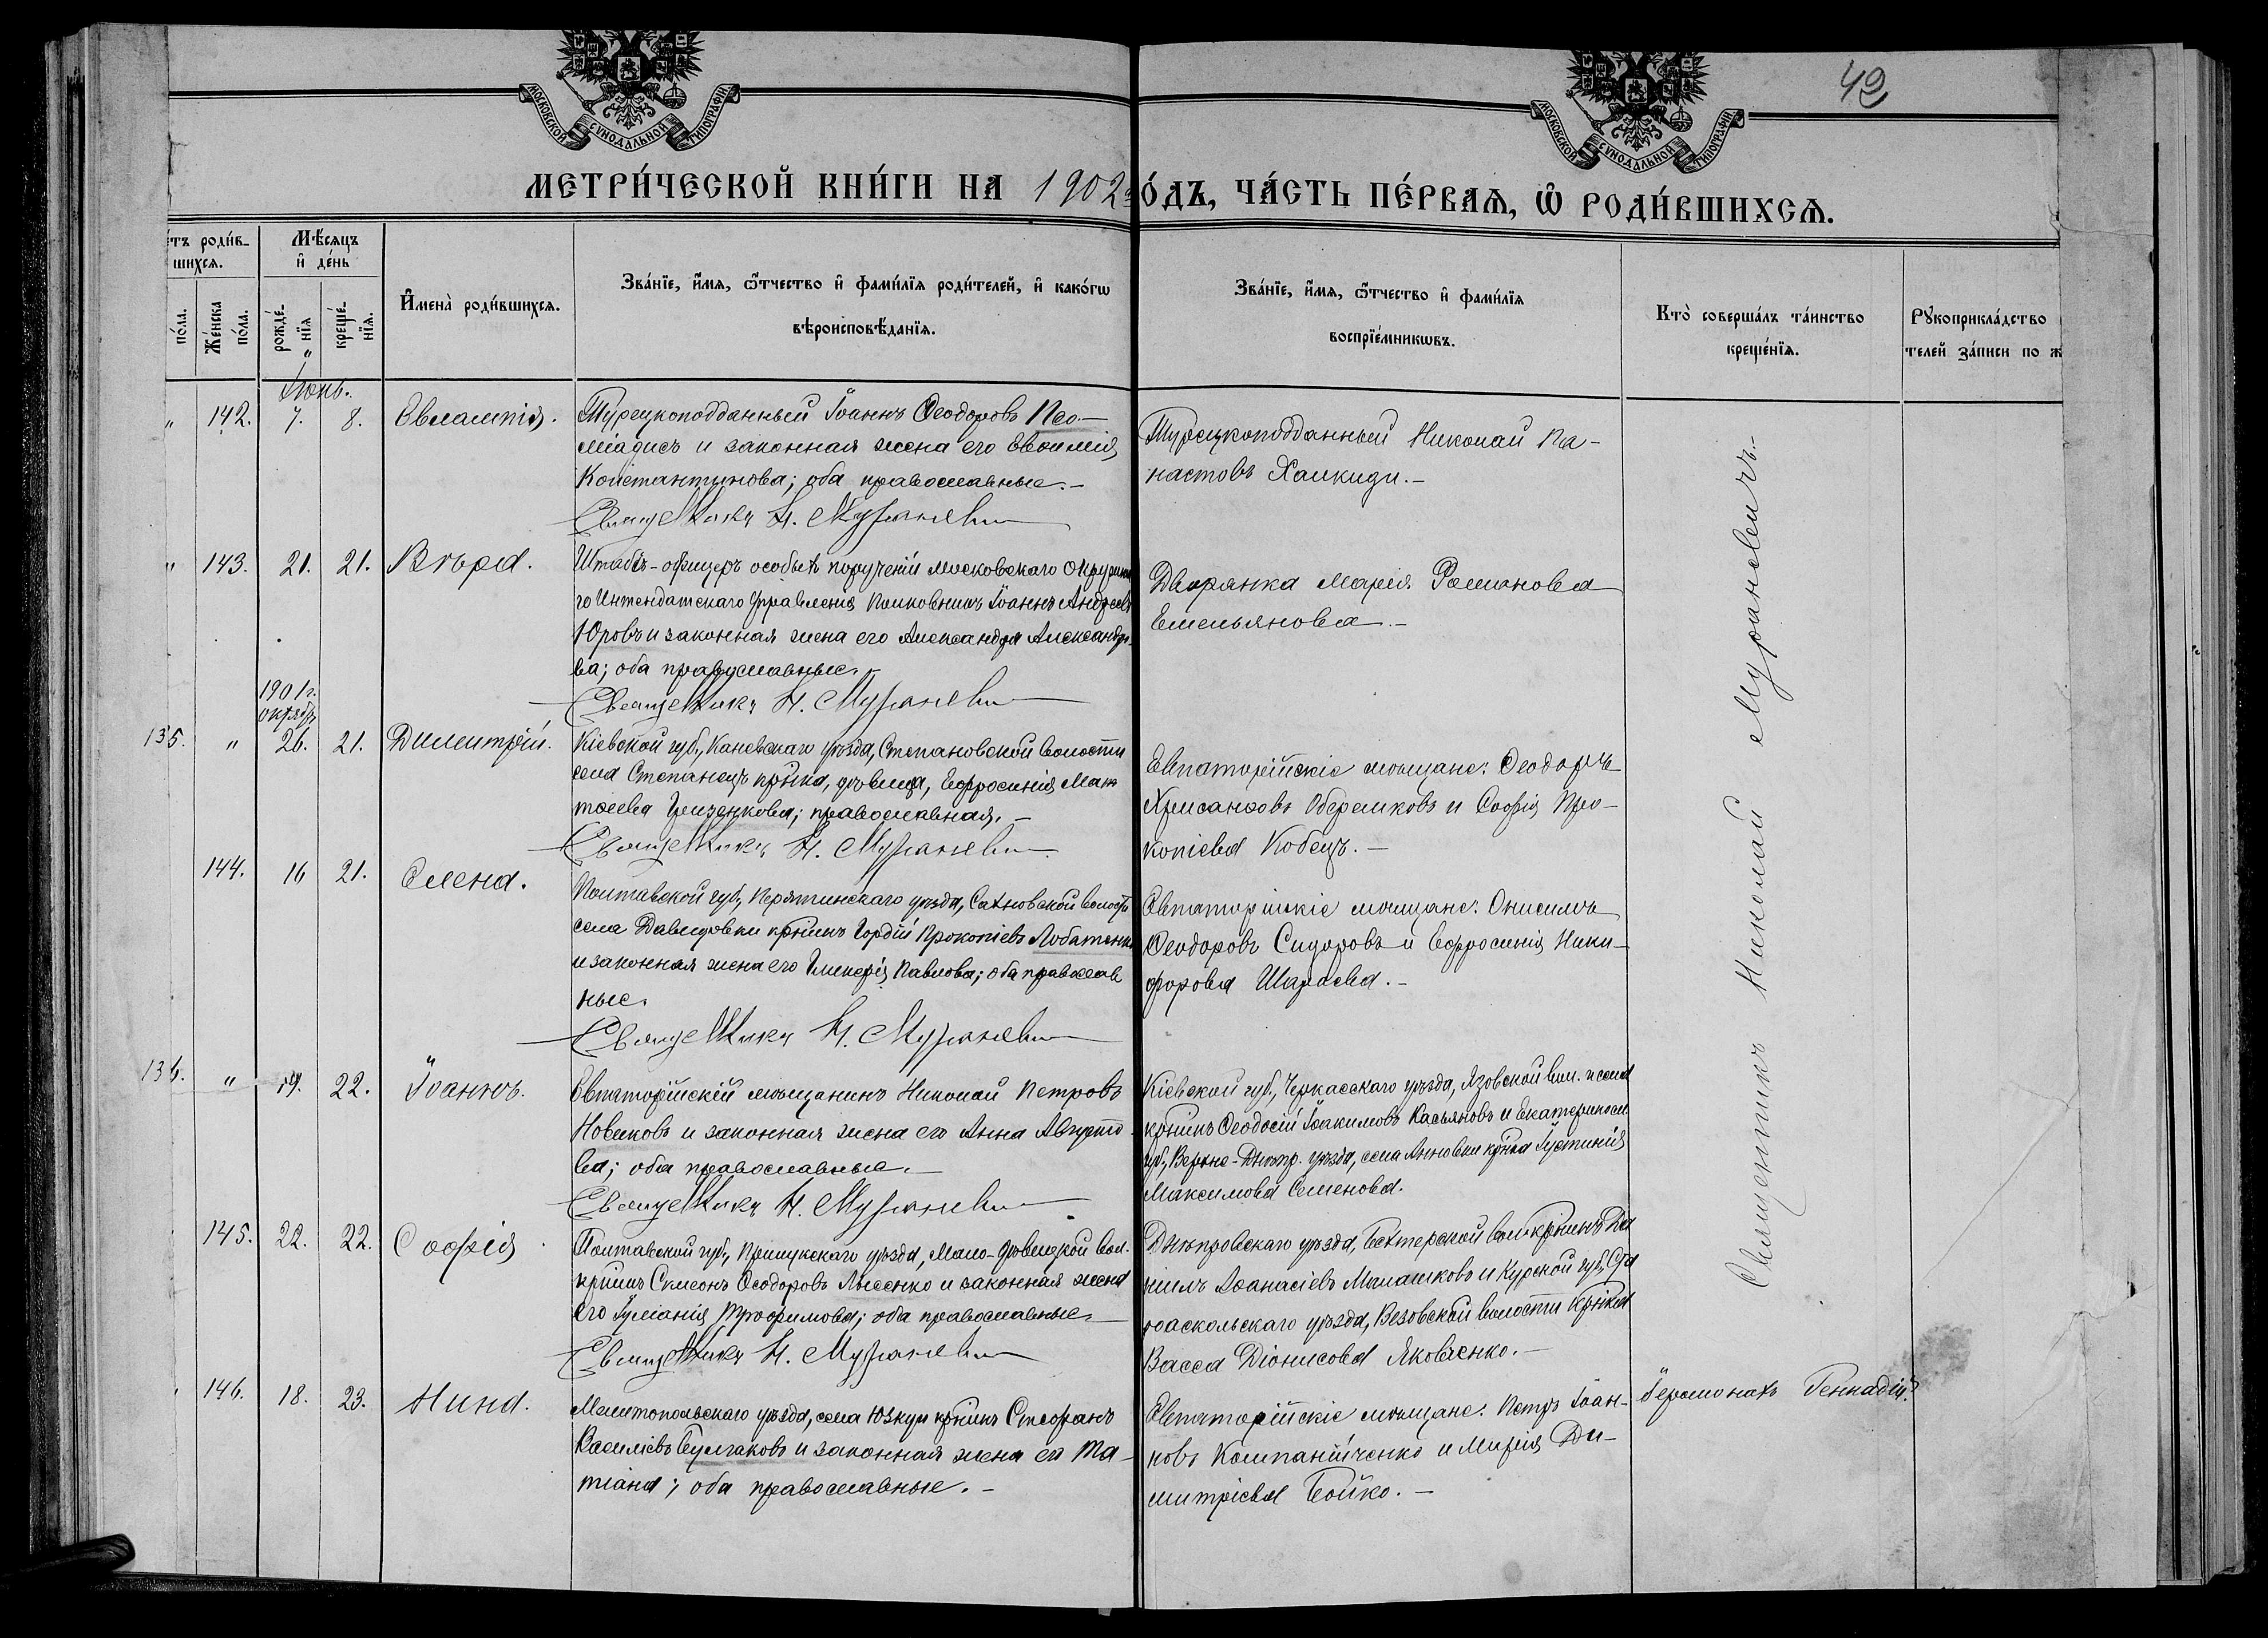 42
МОСКОВСКОЙ СУНОДАЛЬНОЙ ТИПОГРАФІИ
МОСКОВСКОЙ СУНОДАЛЬНОЙ ТИПОГРАФІИ
МЕТРИ́ЧЕСКОЙ КНИ́ГИ НА 1902 г
О́ДЪ, ЧА́СТЬ ПЕ́РВАѦ, Ѡ҆ РОДИ́ВШИХСѦ.
е́тъ роди́в-
шихсѧ.
Мѣ́сяцъ
и҆ де́нь
по́ла.
Же́нска
по́ла.
рожде́-
нїѧ
креще́-
нїѧ.
И҆мена̀ роди́вшихсѧ.
Зва́нїе, и҆́мѧ, ѻ҆́тчество и҆ фами́лїѧ роди́телей, и҆ како́гѡ
вѣроисповѣ́данїѧ.
Зва́нїе, и҆́мѧ, ѻ҆́тчество и҆ фами́лїѧ
воспрїе́мникѡвъ.
Кто̀ соверша́лъ та́инство
креще́нїѧ.
Рꙋкоприкла́дство
телей за́писи по ж
Іюнь.
" 142. 7. 8. Евлампія.
Турецкоподданный Іоаннъ Ѳеодоровъ Нео-
міадисъ и законная жена его Евѳимія
Константинова; оба православные.-
Священникъ Н. Мураневич
Турецкоподданный Николай Па-
настовъ Халкиди.-
" 143. 21. 21. Вѣра.
Штабъ-офицеръ особыхъ порученій Московскаго Окружна
го Интендатскаго Управленія Полковникъ Іоаннъ Андреевъ
Юровъ и законная жена его Александра Александро-
ва; оба православные.-
Священникъ Н. Мураневич
Дворянка Марія Романова
Емельянова.-
1901 г.
октябрь
135. " 26. 21. Димитрій.
Кіевской губ., Каневскаго уѣзда, Степановской волости
села Степанецъ кр–нка, дѣвица, Евфросинія Мат
ѳеева Гризенкова; православная.-
Священникъ Н. Мураневич
Евпаторійскіе мѣщане: Ѳеодоръ
Хрисанѳовъ Оберемковъ и Софія Про-
копіева Кобецъ.-
144. 16 21. Елена.
Полтавской губ., Пирятинскаго уѣзда, Сахновской волости
села Давидовки кр–нинъ Гордій Прокопіевъ Лобатенко
и законная жена его Гликерія Павлова; оба православ
ные.
Священникъ Н. Мураневич
Евпаторійскіе мѣщане: Онисимъ
Ѳеодоровъ Сидоровъ и Евфросинія Ники-
форова Шараева.-
136. " 19. 22. Іоаннъ.
Евпаторійскій мѣщанинъ Николай Петровъ
Новиковъ и законная жена его Анна Августо-
ва; оба православные.-
Священникъ Н. Мураневич
Кіевской губ., Черкасскаго уѣзда, Язовской вол. и села
кр–нинъ Ѳеодосій Іоакимовъ Касьяновъ и Екатериносл.
губ., Верхне-Днѣпр. уѣзда, села Анновки кр–нка Іустинія
Максимова Семенова.
145. 22. 22. Софія.
Полтавской губ., Прилукскаго уѣзда, Мало-Дѣвицкой вол.
кр–нинъ Симеонъ Ѳеодоровъ Лысенко и законная жена
его Іуліанія Трофимова; оба православные.-
Священникъ Н. Мураневич
Днѣпровскаго уѣзда, Бехтерской вол. кр–нинъ Да
ніилъ Аѳанасіевъ Малашковъ и Курской губ., Ста
рооскольскаго уѣзда, Везовской волости кр–нка
Васса Діонисова Яковченко.-
146. 18. 23. Нина.
Мелитопольскаго уѣзда, села Юзкуи кр–нинъ Стефанъ
Василіевъ Булгаковъ и законная жена его Та-
тіана; оба православные.-
Евпаторійскіе мѣщане: Петръ Іоан-
новъ Компанійченко и Марія Ди-
митріева Бойко.-
Священникъ Николай Мураневичъ.-
Іеромонахъ Геннадій.